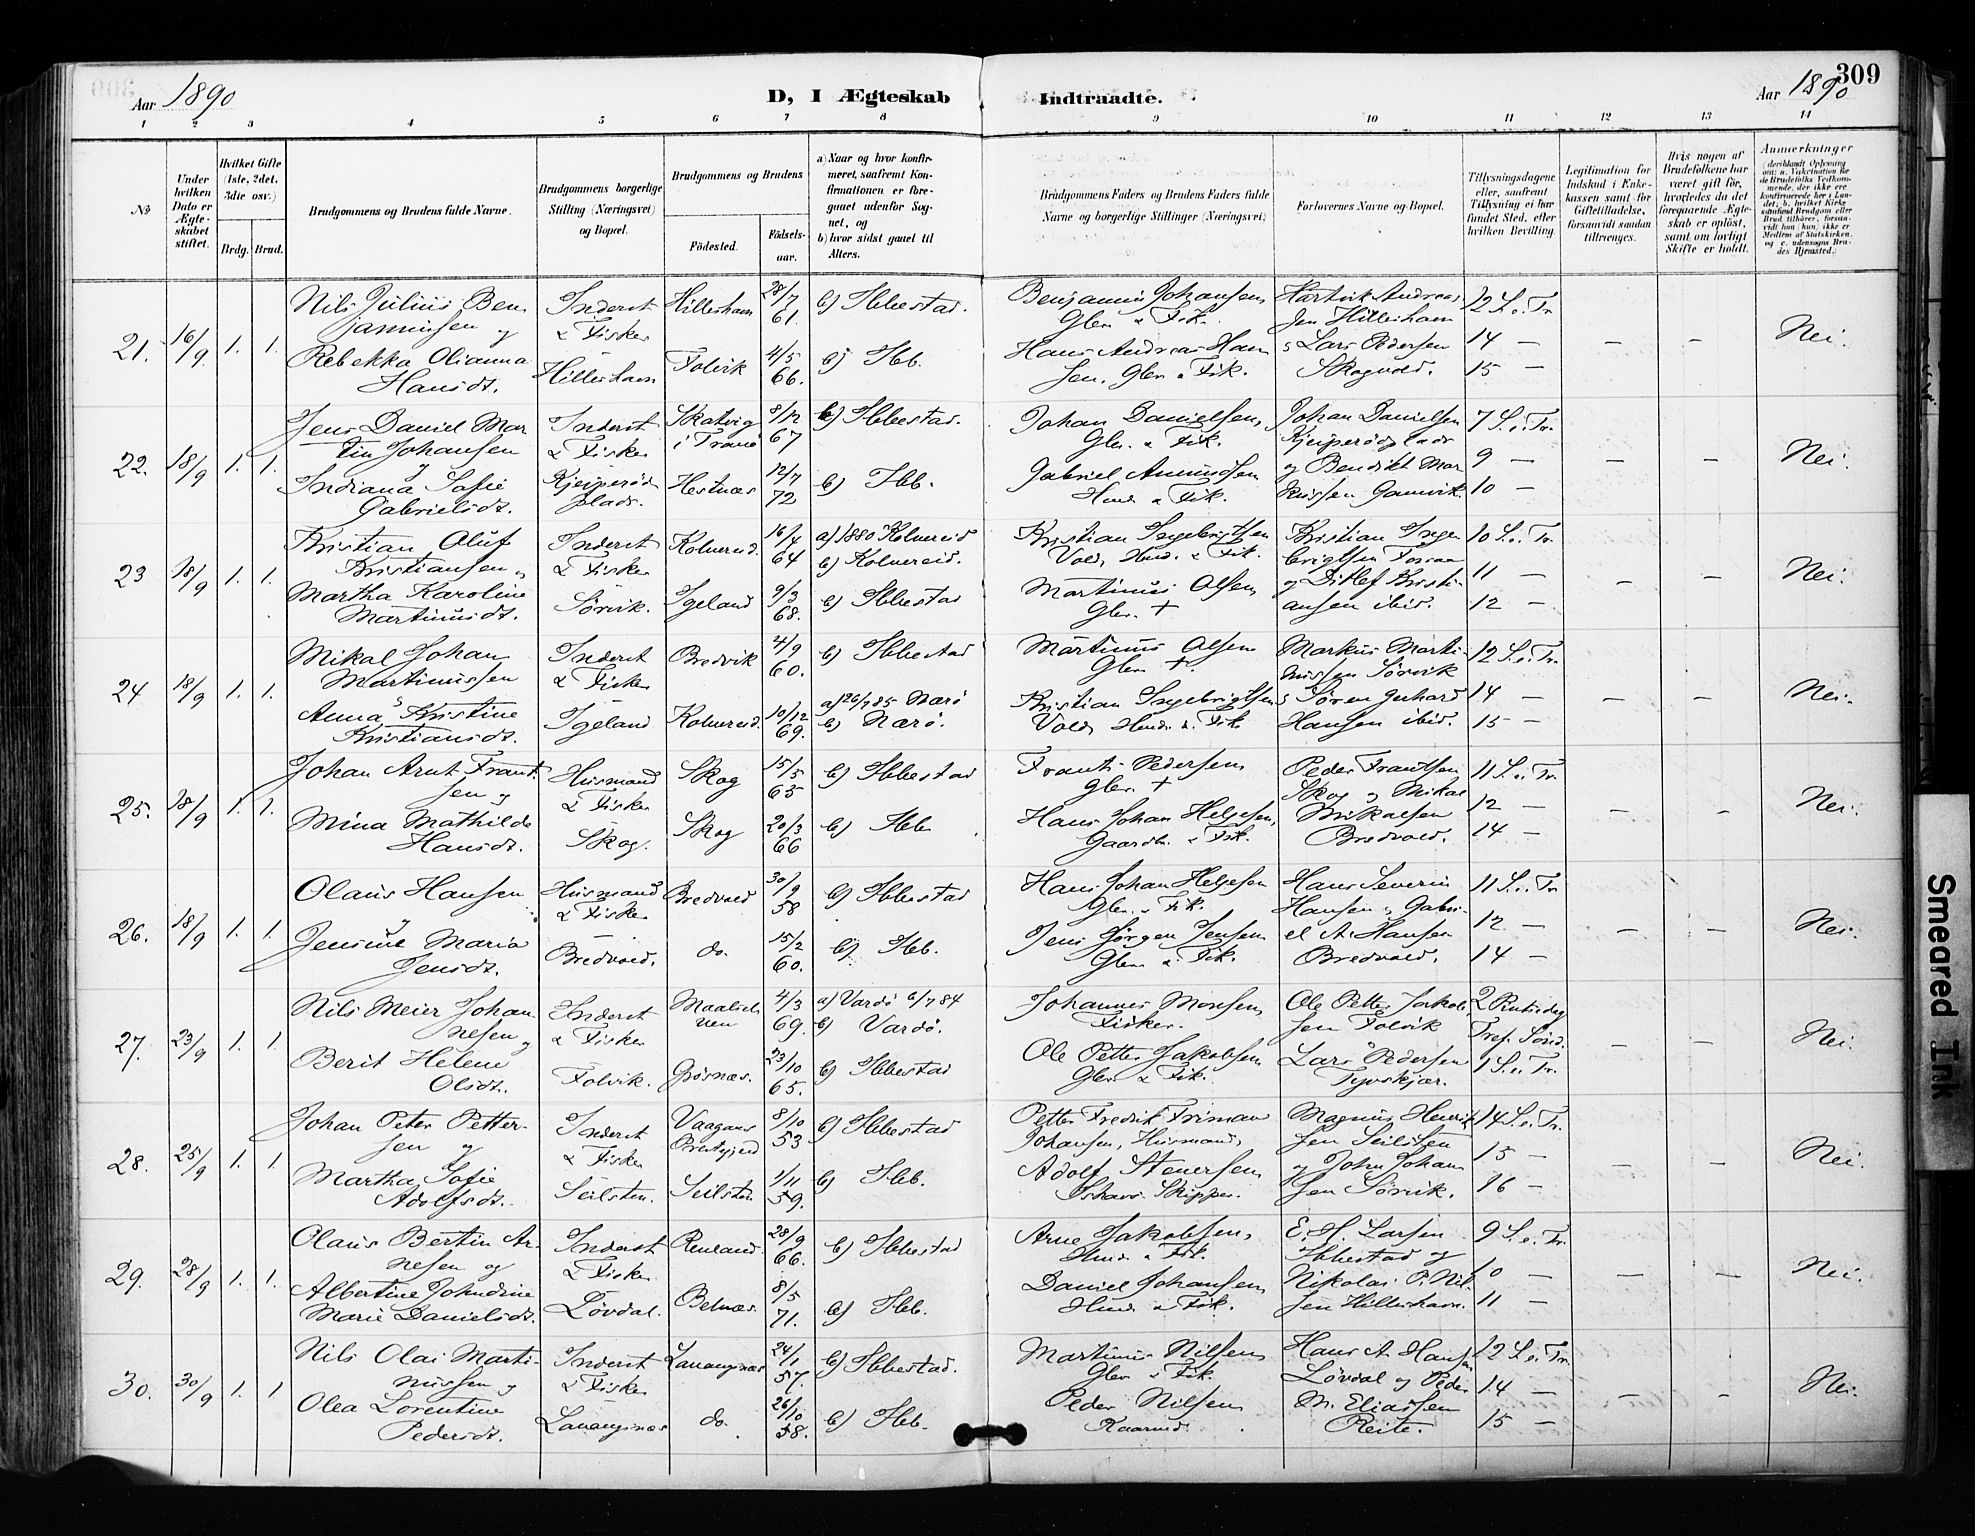 309
Aar 1890
D, I Ægteskab Indtraadte.
Aar 1890
1 2 3 4 5 6 7 8 9 10 11 12 13 14
№
Under hvilken Dato er Ægteskabet stiftet.
Hvilket Gifte (1ste, 2det, 3die osv.)
Brdg. Brud.
Brudgommens og Brudens fulde Navne.
Brudgommens borgerlige Stilling (Næringsvei) og Bopæl.
Brudgommens og Brudens
Födested.
Födsels-aar.
a) Naar og hvor konfirmeret, saafremt Konfirmationen er foregaaet udenfor Sognet, og
b) hvor sidst gaaet til Alters.
Brudgommens Faders og Brudens Faders fulde Navne og borgerlige Stillinger (Næringsvei)
Forlovernes Navne og Bopæl.
Tillysningsdagene eller, saafremt Tillysning ei har fundet Sted, efter hvilken Bevilling.
Legitimation for Indskud i Enkekassen samt for Giftetilladelse, forsaavidt saadan tiltrænges.
Hvis nogen af Brudefolkene har været gift för, hvorledes da det foregaaende Ægteskab er oplöst, samt om lovligt Skifte er holdt.
Anmerkninger
21. 16/9 1. 1.
Nils Julius Benjaminsen og
Rebekka Olianna Hansdt.
Inderst & Fisker Hilleshavn
Hilleshavn 28/7 61. b) Ibbestad.
Folvik 4/5 66. b) Ibb.
Benjamin Johansen Gbr. & Fisk.
Hans Andreas Hansen, Gbr. & Fisk.
Hartvik Andreasen Hilleshavn
& Lars Pedersen Skogvold.
12 S. e. Tr. 14 — 15 —
— — Nei.
22. 18/9 1. 1.
Jens Daniel Martin Johansen og
Indiana Sofie Gabrielsdt.
Inderst & Fisker Kjeiperødplads.
Skatvig i Tranö 8/12 67 b) Ibbestad.
Hestnæs 12/7 72 b) Ibb.
Johan Danielsen, Gbr. & Fisk.
Gabriel Amundsen Husm. & Fisk.
Johan Danielsen Kjeiperødplads
og Bendikt Markussen Gamvik.
7 S. e. Tr. 9 — 10 —
— — Nei.
23 18/9 1. 1.
Kristian Oluf Kristiansen og
Martha Karoline Martinusdt.
Inderst & Fisker Sörvik.
Kolvereid. 16/4 64 a) 1880 Kolvereid b) Kolvereid.
Igeland 9/3 68. b) Ibbestad
Kristian Ingebrigtsen Vold, Husm. & Fisk.
Martinus Olsen, Gbr. +
Kristian Ingebrigtsen
og Ditlef Kristiansen ibid.
10 S. e. Tr. 11 — 12 —
— — Nei.
24 18/9 1. 1.
Mikal Johan Martinussen
& Anna Kristine Kristiansdt.
Inderst & Fisker Igeland
Bredvik 4/9 60. b) Ibbestad
Kolvereid. 10/12 69. a) 26/7 85 Nærö b) Nærö.
Martinus Olsen Gbr. +
Kristian Ingebrigtsen Vold, Husm. & Fisk.
Markus Martinussen Sörvik
& Sören Gerhard Hansen ibid.
12 S. e. Tr. 14 — 15 —
— — Nei.
25. 18/9 1. 1.
Johan Arnt Frantsen og
Mina Mathilde Hansdt.
Husmand & Fisker Skog.
Skog 15/5 65 b) Ibbestad
Skog 20/3 66 b) Ibb
Frants Pedersen Gbr. +
Hans Johan Helgesen, Gaardbr. & Fisk.
Peder Frantsen Skog og Mikal Mikalsen Bredvold.
11 S. e. Tr. 12 — 14 —
— — Nei.
26. 18/9 1. 1.
Olaus Hansen og
Jensine Maria Jensdt.
Husmand & Fisker — Bredvold.
Bredvold 30/9 58 b) Ibbestad
do. 15/2 60. b) Ibb.
Hans Johan Helgesen Gbr. & Fisk.
Jens Jörgen Jensen Gbr. & Fisk.
Hans Severin Hansen & Gabriel A. Hansen Bredvold.
11 S. e. Tr. 12 — 14 —
— — Nei.
27. 23/9 1. 1.
Nils Meier Johannesen og
Berit Helene Olsdt.
Inderst & Fisker Folvik.
Maalselven 4/3 69. a) Vardö 6/7 84 b) Vardö.
Grøsnæs. 23/10 65. b) Ibbestad
Johannes Monsen Fisker.
Ole Petter Jakobsen Gbr. & Fisk.
Ole Petter Jakobsen Folvik
Lars Pedersen Tyvskjær.
2 Pintsedag Tref. Sönd. 1 S. e. Tr.
— — Nei.
28. 25/9 1. 1.
Johan Peter Pettersen og
Martha Sofie Adolfsdt.
Inderst & Fisker Seilsten.
Vaagans Prestegjeld 8/10 53 b) Ibbestad
Seilsten 1/11 59. b) Ibb.
Petter Fredrik Friman Johansen, Husmand,
Adolf Stenersen Ishavs. Skipper.
Magnus Henriksen Seilsten
og John Johansen Sörvik.
14 S. e. Tr. 15 — 16 —
— — Nei.
29. 28/9 1. 1.
Olaus Bertin Arnesen og
Albertine Johndine Marie Danielsdt.
Inderst & Fisker Lövdal.
Renland. 28/9 66. b) Ibbestad
Belnæs. 8/5 71. b) Ibb.
Arne Jakobsen, Husm. & Fisk.
Daniel Johansen Husm. & Fisk.
E. H. Larsen Ibbestad og
Nikolai P. Nilsen Hilleshavn.
9 S. e. Tr. 10 — 11 —
— — Nei.
30. 30/9 1. 1
Nils Olai Martinussen og
Olea Lorentine Pedersdt.
Inderst & Fisker Lavangsnæs
Lavangsnæs 24/1 57. b) Ibbestad.
do. 26/10 58. b) Ibb.
Martinus Nilsen Gbr. & Fisk.
Peder Nilsen Kaarmd.
Hans A. Hansen Lövdal og Peder M. Eliassen Reite.
12 S. e. Tr. 14 — 15 —
— — Nei.
Smeared Ink